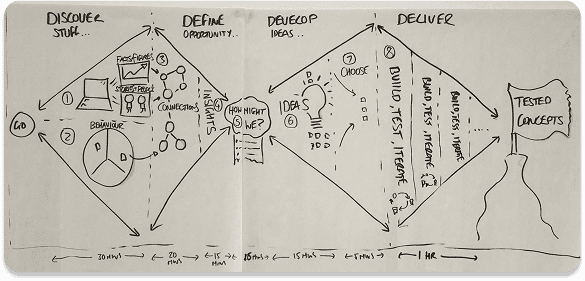 DISCOVER
STUFF...
DEFINE
OPPORTUNITY...
DEVELOP
IDEAS...
DELIVER
GO
1
FACTS FIGURES
STORIES PEOPLE
2
BEHAVIOUR
3
CONNECTIONS
4
INSIGHTS
HOW MIGHT
5
WE?
IDEAS
6
7
CHOOSE
8
BUILD, TEST, ITERATE
BUILD, TEST, ITERATE
BUILD, TEST, ITERATE
TESTED
CONCEPTS
30 MINS
20
MINS
15
MIN
15 MINS
5 MINS
1 HR